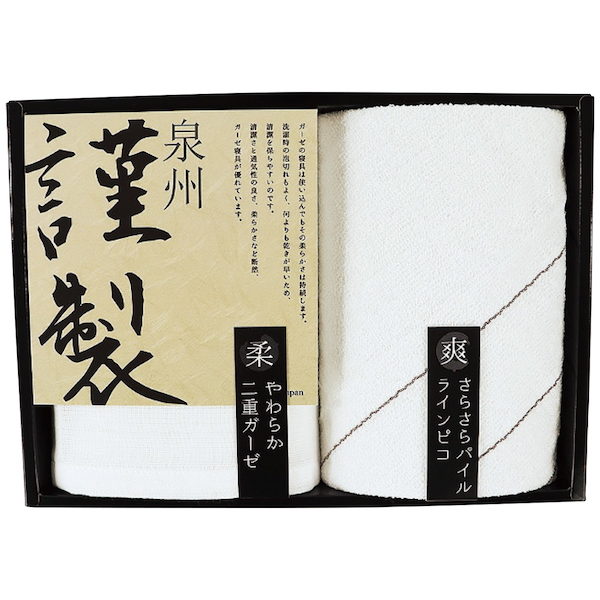 泉州
謹製
ガーゼの寝具は使い込んでもその柔らかさは持続します。
洗濯時の泡切れもよく、何よりも乾きが早いため、
清潔を保ちやすいのです。
清潔さと通気性の良さ、柔らかさなど断然、
ガーゼ寝具が優れています。
japan
柔
やわらか
二重ガーゼ
爽
さらさらパイル
ラインピコ